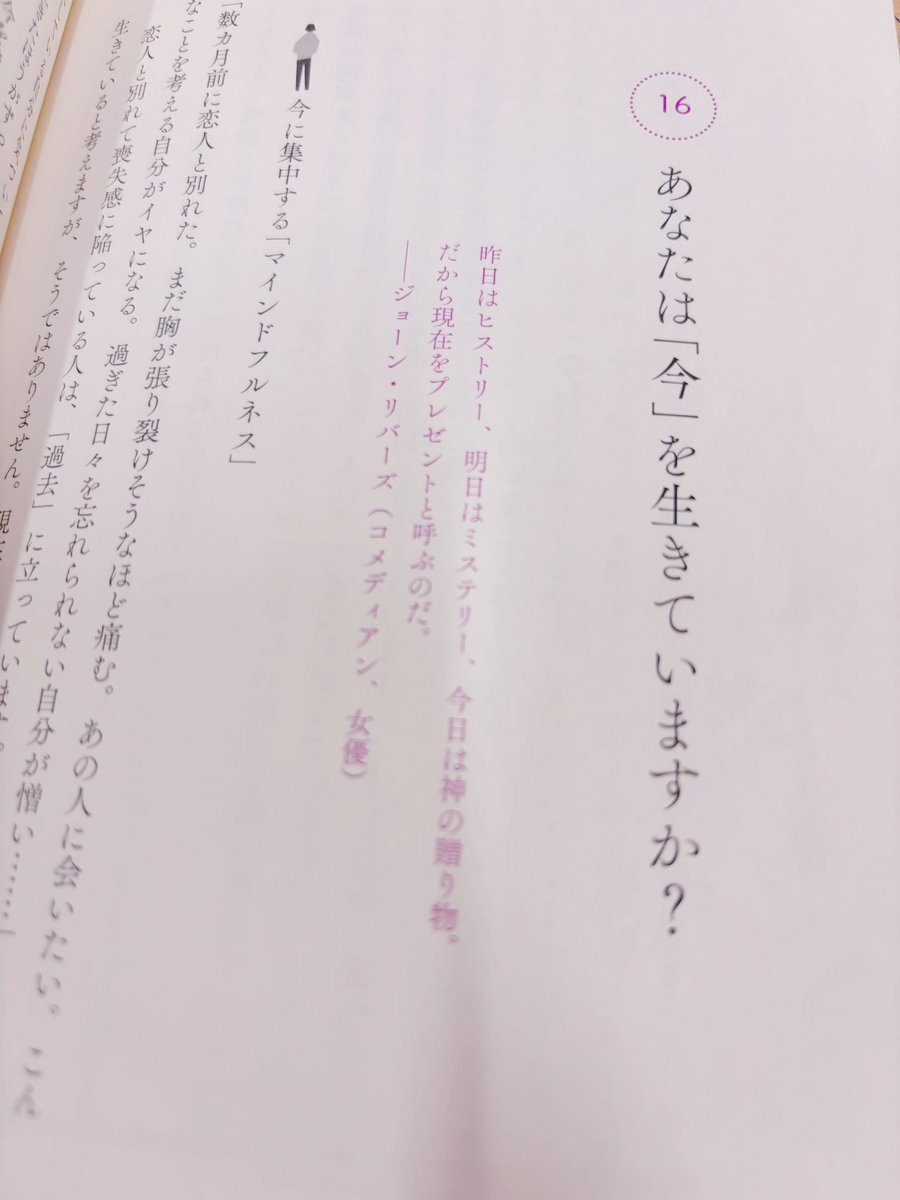 16
あなたは「今」を生きていますか？
昨日はヒストリー、明日はミステリー、今日は神の贈り物。
だから現在をプレゼントと呼ぶのだ。
――ジョーン・リバーズ（コメディアン、女優）
今に集中する「マインドフルネス」
「数カ月前に恋人と別れた。まだ胸が張り裂けそうなほど痛む。あの人に会いたい。こん
なことを考える自分がイヤになる。過ぎた日々を忘れられない自分が憎い……」
恋人と別れて喪失感に陥っている人は、「過去」に立っています。
生きていると考えますが、そうではありません。現在